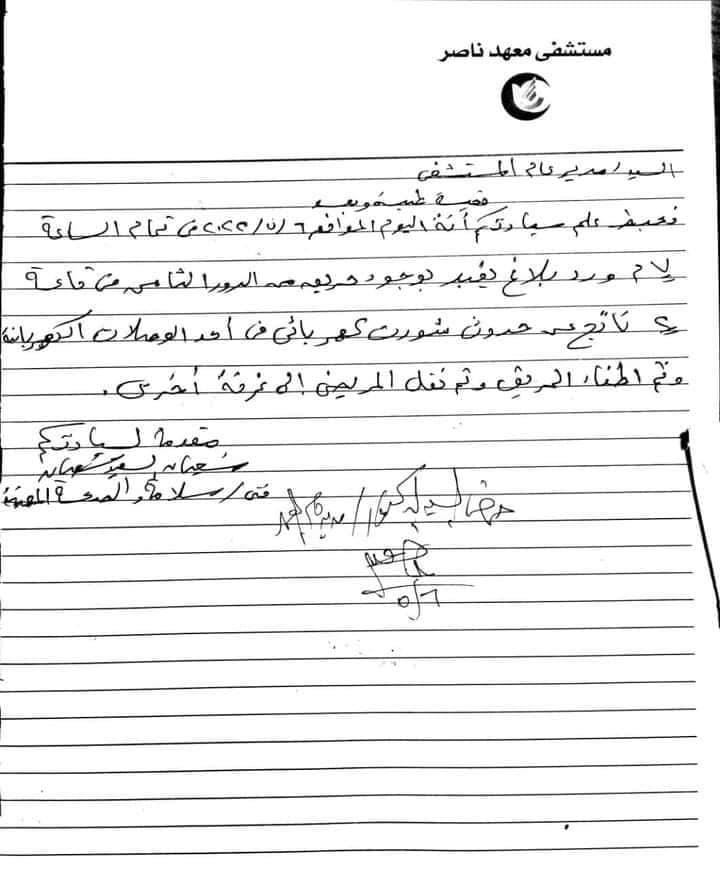 مستشفى معهد ناصر
السيد / مدير عام المستشفى
تحية طيبة وبعد
نحيط علم سيادتكم أنه اليوم الموافق ٦ /٥/ ٢٠٢٢ فى تمام الساعة
٧ م ورد بلاغ يفيد بوجود حريق من الدور الثامن فى قاعة
ناتج عن حدوث شورت كهربائى فى أحد الوصلات الكهربائية
وتم اطفاء الحريق وتم نقل المريض الى غرفة أخرى .
مقدمة لسيادتكم
شعبان السيد شعبان
فنى / سلامة والصحة المهنية
السيد الدكتور / مدير عام
٥/٦